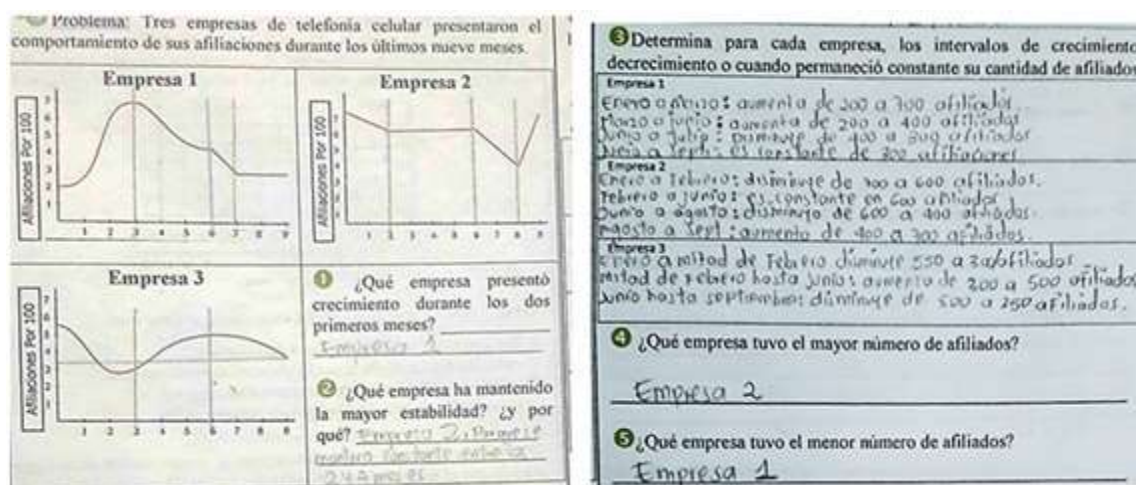 Problema: Tres empresas de telefonía celular presentaron el
comportamiento de sus afiliaciones durante los últimos nueve meses.
Empresa 1
Afiliaciones Por 100
7
6
5
4
3
2
1
1 2 3 4 5 6 7 8 9
Empresa 2
Afiliaciones Por 100
1 2 3 4 5 6 7 8 9
Empresa 3
Afiliaciones Por 100
7
6
5
4
3
2
1
1 2 3 4 5 6 7 8 9
1 ¿Qué empresa presentó
crecimiento durante los dos
primeros meses?
Empresa 1
2 ¿Qué empresa ha mantenido
la mayor estabilidad? ¿y por
qué? Empresa 2, Porque se
constante entre los
3 Determina para cada empresa, los intervalos de crecimiento
decrecimiento o cuando permaneció constante su cantidad de afiliados
Empresa 1
Enero a Marzo: aumenta de 200 a 700 afiliados
Marzo a junio: aumenta de 200 a 400 afiliados
Junio a Julio: Disminuye de 400 a 300 afiliados
a Sept: es constante de 300 afiliaciones
Empresa 2
Enero a Febrero: disminuye de 700 a 600 afiliados.
Febrero a junio: es constante en 600 afiliados
Junio a agosto: disminuyo de 600 a 400 afiliados.
Agosto a Sept: aumento de 400 a 700 afiliados.
Empresa 3
Enero a mitad de Febrero disminuye 550 a afiliados
mitad de Febrero hasta junio: aumento de 200 a 500 afiliados
Junio hasta septiembre: disminuye de 500 a 350 afiliados.
4 ¿Qué empresa tuvo el mayor número de afiliados?
Empresa 2
5 ¿Qué empresa tuvo el menor número de afiliados?
Empresa 1